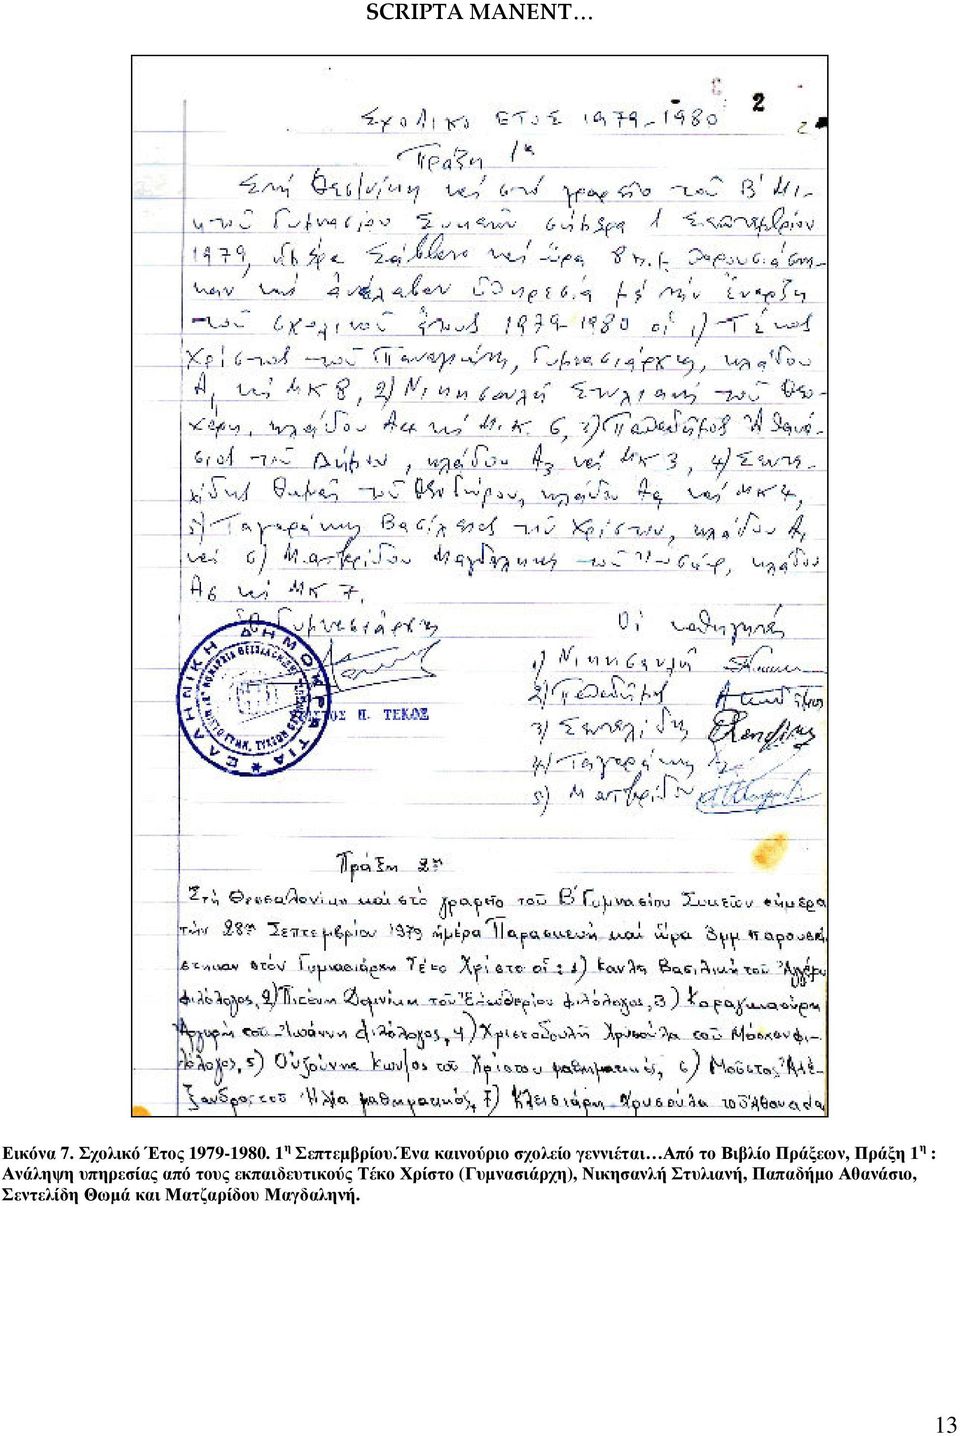 SCRIPTA MANENT…
2
Σχολικό ΕΤΟΣ 1979-1980
Πράξη 1η
Στή Θεσ/νίκη καί στό γραφείο τοῦ Β΄ Μι-
κτοῦ Γυμνασίου Συκεῶν σήμερα 1 Σεπτεμβρίου
1979, ἡμέρα Σάββατο καί ὥρα 8 π.μ. παρουσιάστη-
καν καί ἀνέλαβαν ὑπηρεσία μέ τήν ἔναρξη
τοῦ σχολικοῦ ἔτους 1979-1980 οἱ 1) Τέκος
Χρίστος τοῦ Παναγιώτη, Γυμνασιάρχης, κλάδου
Α1 καί ΜΚ 8, 2) Νικησανλή Στυλιανή τοῦ Θεο-
χάρη, κλάδου καί Μ.Κ. 6, 3) Παπαδῆμος Ἀθανά-
σιος τοῦ Δήμου, κλάδου Α3 καί ΜΚ 3, 4) Σεντε-
λίδης Θωμᾶς τοῦ Θεοδώρου, κλάδου καί ΜΚ 4,
5) Ταγαράκης Βασίλειος τοῦ Χρίστου, κλάδου
καί 6) Ματζαρίδου Μαγδαληνή τοῦ κλάδου
Α6 καί ΜΚ 7.
Ὁ Γυμνασιάρχης Οἱ καθηγητές
1) Νικησανλή
2) Παπαδῆμος
ΕΛΛΗΝΙΚΗ ΔΗΜΟΚΡΑΤΙΑ
ΧΡΙΣΤΟΣ Π. ΤΕΚΟΣ
3) Σεντελίδης
4) Ταγαράκης
5) Ματζαρίδου
Πράξη 2η
Στή Θεσσαλονίκη καί στό γραφεῖο τοῦ Β΄ Γυμνασίου Συκεῶν σήμερα
τήν 28η Σεπτεμβρίου 1979 ἡμέρα Παρασκευή καί ὥρα 3μμ παρουσιά
στηκαν στόν Γυμνασιάρχη Τέκο Χρίστο οἱ: 1) Κανλη Βασιλική τοῦ Ἀγγέλου
φιλόλογος, 2) Πιτένη Δομινίκη τοῦ Ἐλευθερίου φιλόλογος, 3) Καραγκιαούρη
Ἀργυρή τοῦ Ἰωάννη φιλόλογος, 4) Χριστοδουλή Χρυσούλα τοῦ Μόσχου φι-
λόλογος, 5) Οὐζούνης Κων/νος τοῦ Χρίστου μαθηματικός, 6) Μούστος Ἀλέ-
ξανδρος τοῦ Ἠλία μαθηματικός, 7) Κλεισιάρη Χρυσούλα τοῦ Ἀθανασίου
Εικόνα 7. Σχολικό Έτος 1979-1980. 1η Σεπτεμβρίου.Ένα καινούριο σχολείο γεννιέται…Από το Βιβλίο Πράξεων, Πράξη 1η :
Ανάληψη υπηρεσίας από τους εκπαιδευτικούς Τέκο Χρίστο (Γυμνασιάρχη), Νικησανλή Στυλιανή, Παπαδήμο Αθανάσιο,
Σεντελίδη Θωμά και Ματζαρίδου Μαγδαληνή.
13